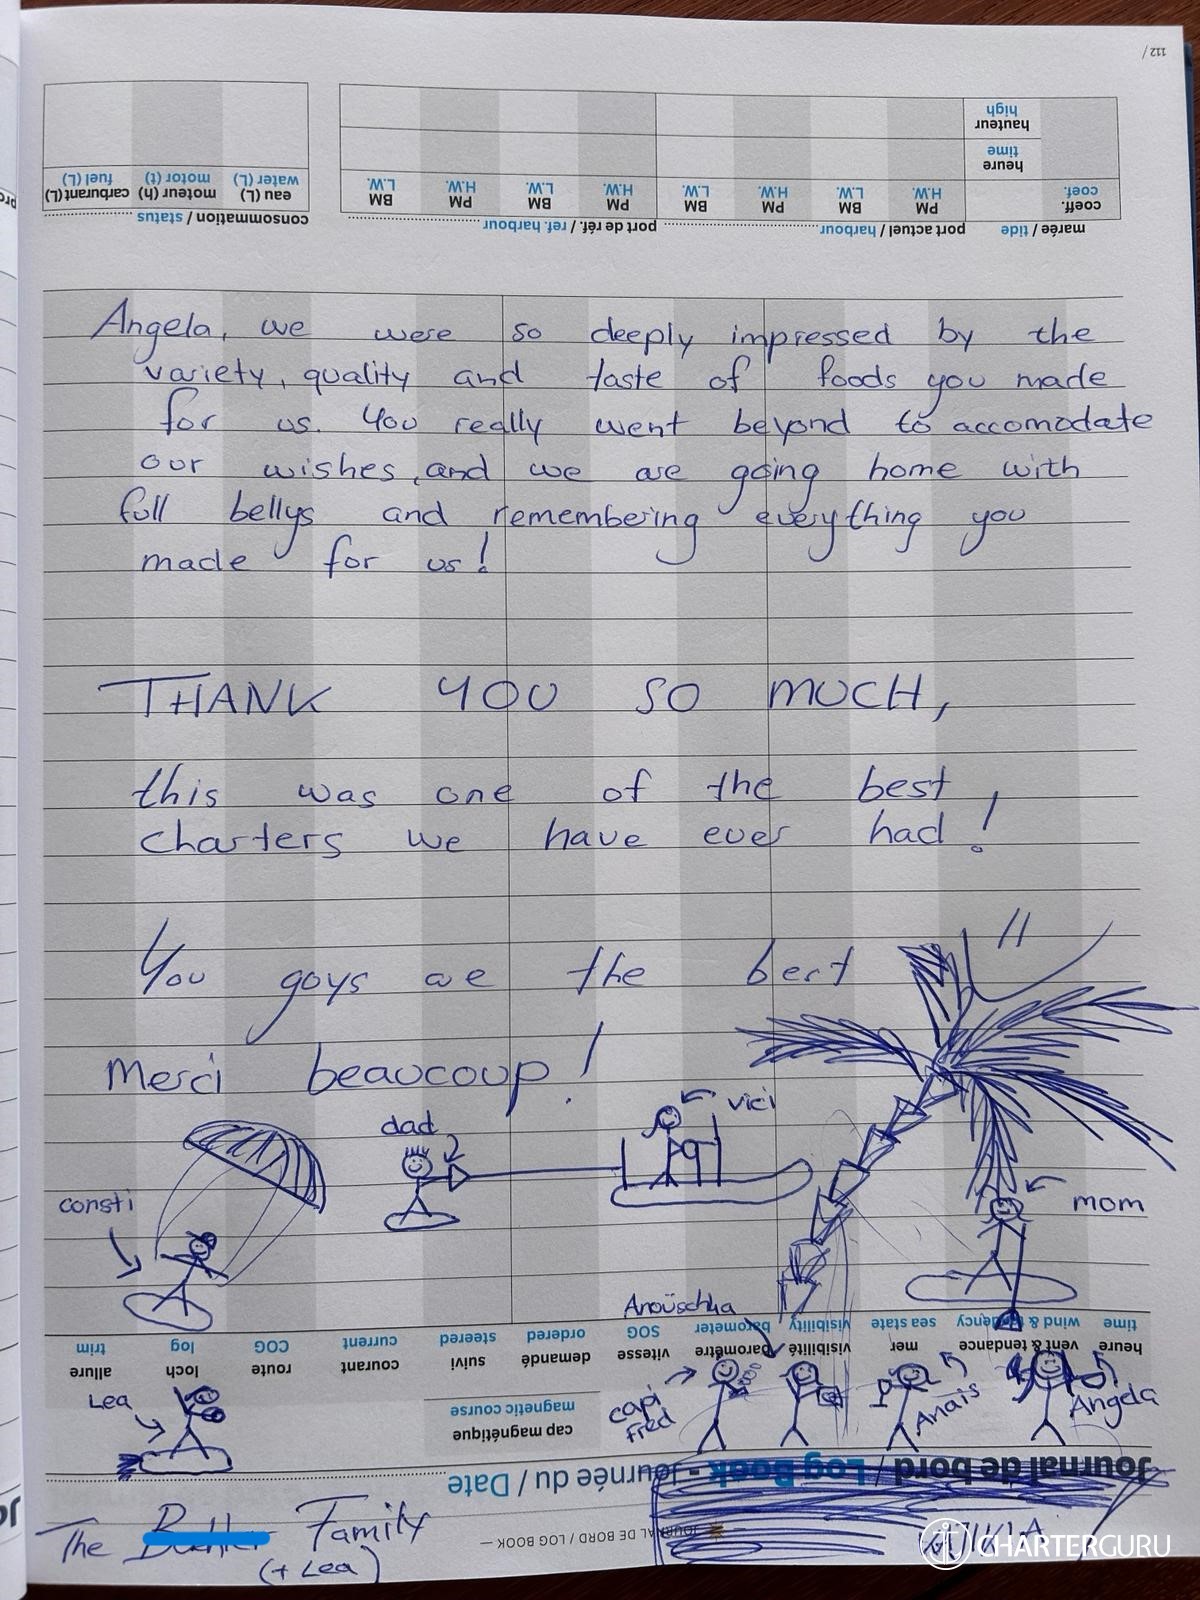 112 /
hauteur
high
heure
time
coeff.
coef.
PM
H.W.
BM
L.W.
PM
H.W.
BM
L.W.
PM
H.W.
BM
L.W.
PM
H.W.
BM
L.W.
marée / tide
port actuel / harbour
port de réf. / ref. harbour
eau (L)
water (L)
moteur (h)
motor (t)
carburant (L)
fuel (L)
consommation / status
Angela, we were so deeply impressed by the
variety, quality and taste of foods you made
for us. You really went beyond to accomodate
our wishes, and we are going home with
full bellys and remembering everything you
made for us!
THANK YOU SO MUCH,
this was one of the best
charters we have ever had!
You guys are the best
Merci beaucoup!
dad
vici
consti
mom
Anoüschka
heure
time
vent & tendance
wind & tendency
mer
sea state
visibilité
visibility
baromètre
barometer
vitesse
SOG
demandé
ordered
suivi
steered
courant
current
route
COG
loch
log
allure
trim
cap magnétique
magnetic course
Lea
capi
Fred
Anaïs
Angela
Journal de bord / Log Book - Journée du / Date
JOURNAL DE BORD / LOG BOOK —
The Family
(+ Lea)
CHARTERGURU